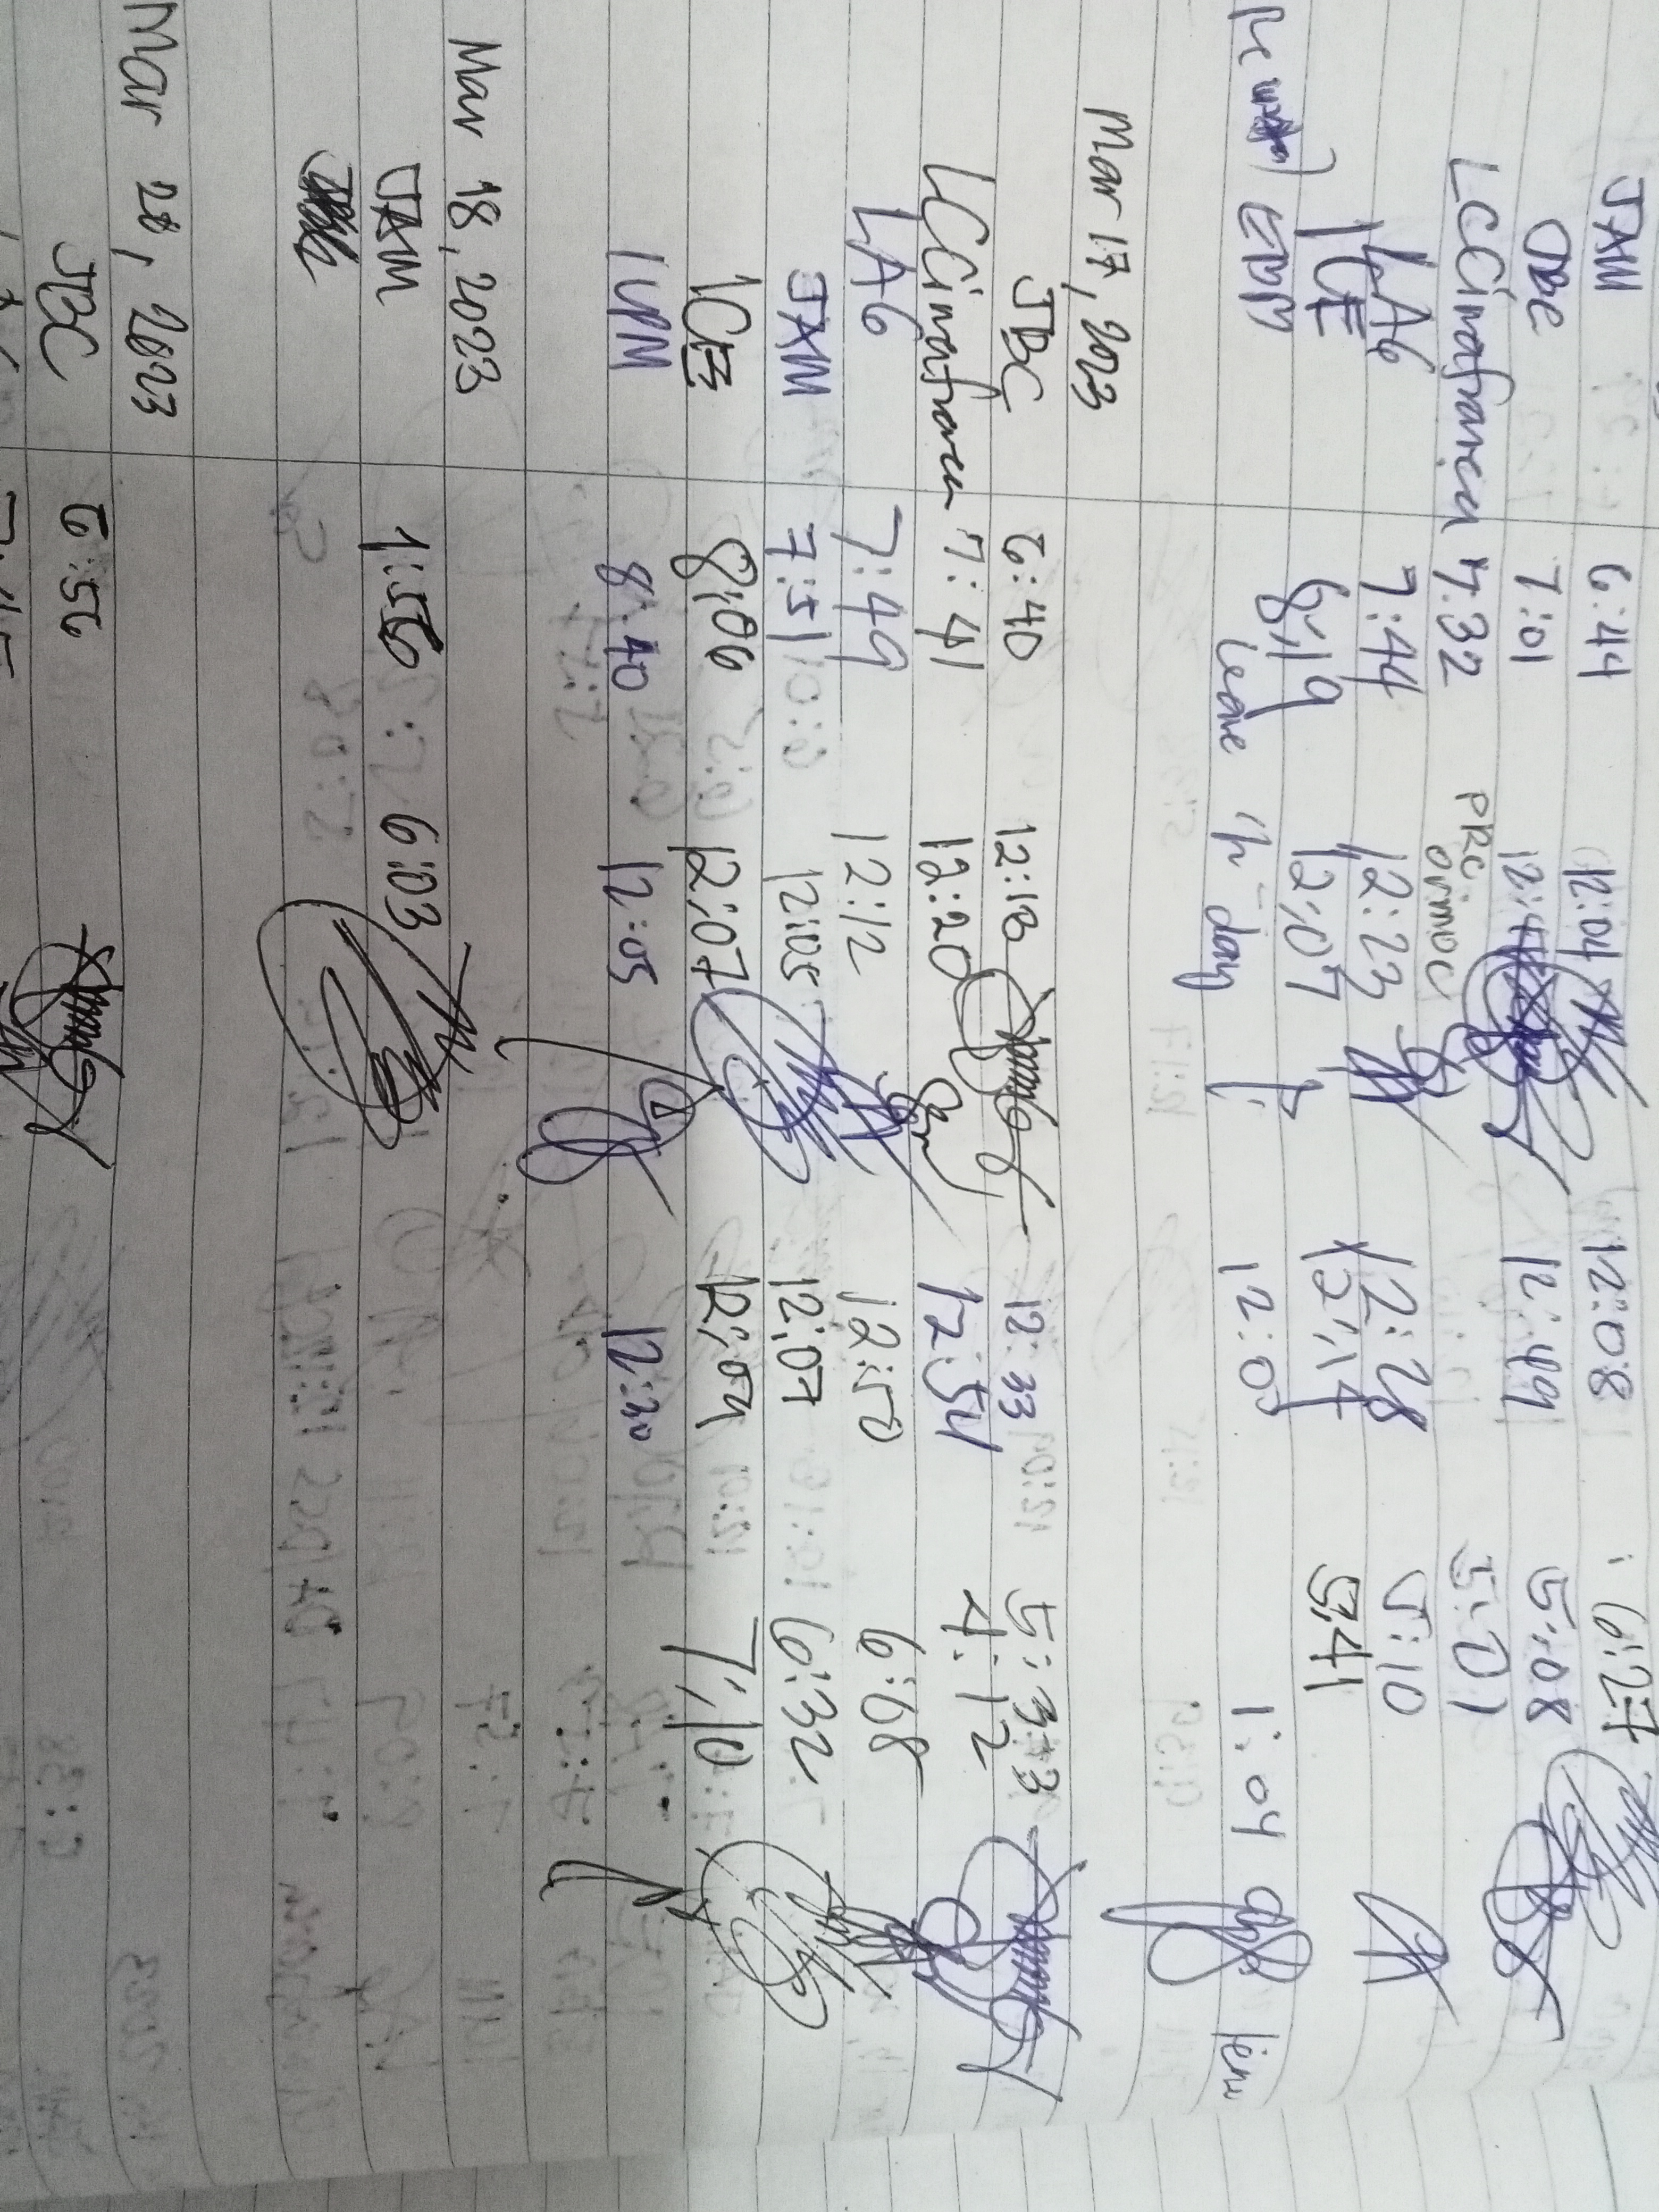 JAM 6:44 12:04 12:08 6:27
JBC 7:01 12:49 5:08
LCCimafranca 7:32 PRC ormoc 5:01
LAG 7:44 12:23 12:28 5:10
ICE 8:19 12:07 12:17 5:41
EDM leave day 12:05 1:04
Mar 17, 2023
JBC 6:40 12:18 12:33 5:33
LCCimafranca 7:41 12:20 12:54 4:12
LAG 7:49 12:12 12:50 6:08
JAM 7:51 12:05 12:07 6:32
ICE 8:06 12:07 12:09 7:10
8:40 12:05 12:30
Mar 18, 2023
JAM 1:56 6:03
Mar 20, 2023
JBC 6:56